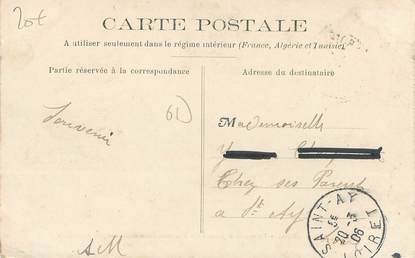 20€
CARTE POSTALE
A utiliser seulement dans le régime intérieur (France, Algérie et Tunisie)
Partie réservée à la correspondance
Adresse du destinataire
Souvenir
61
Mademoiselle
Chez ses Parents
a St Ay
AM
SAINT-AY
20
06
LOIRET